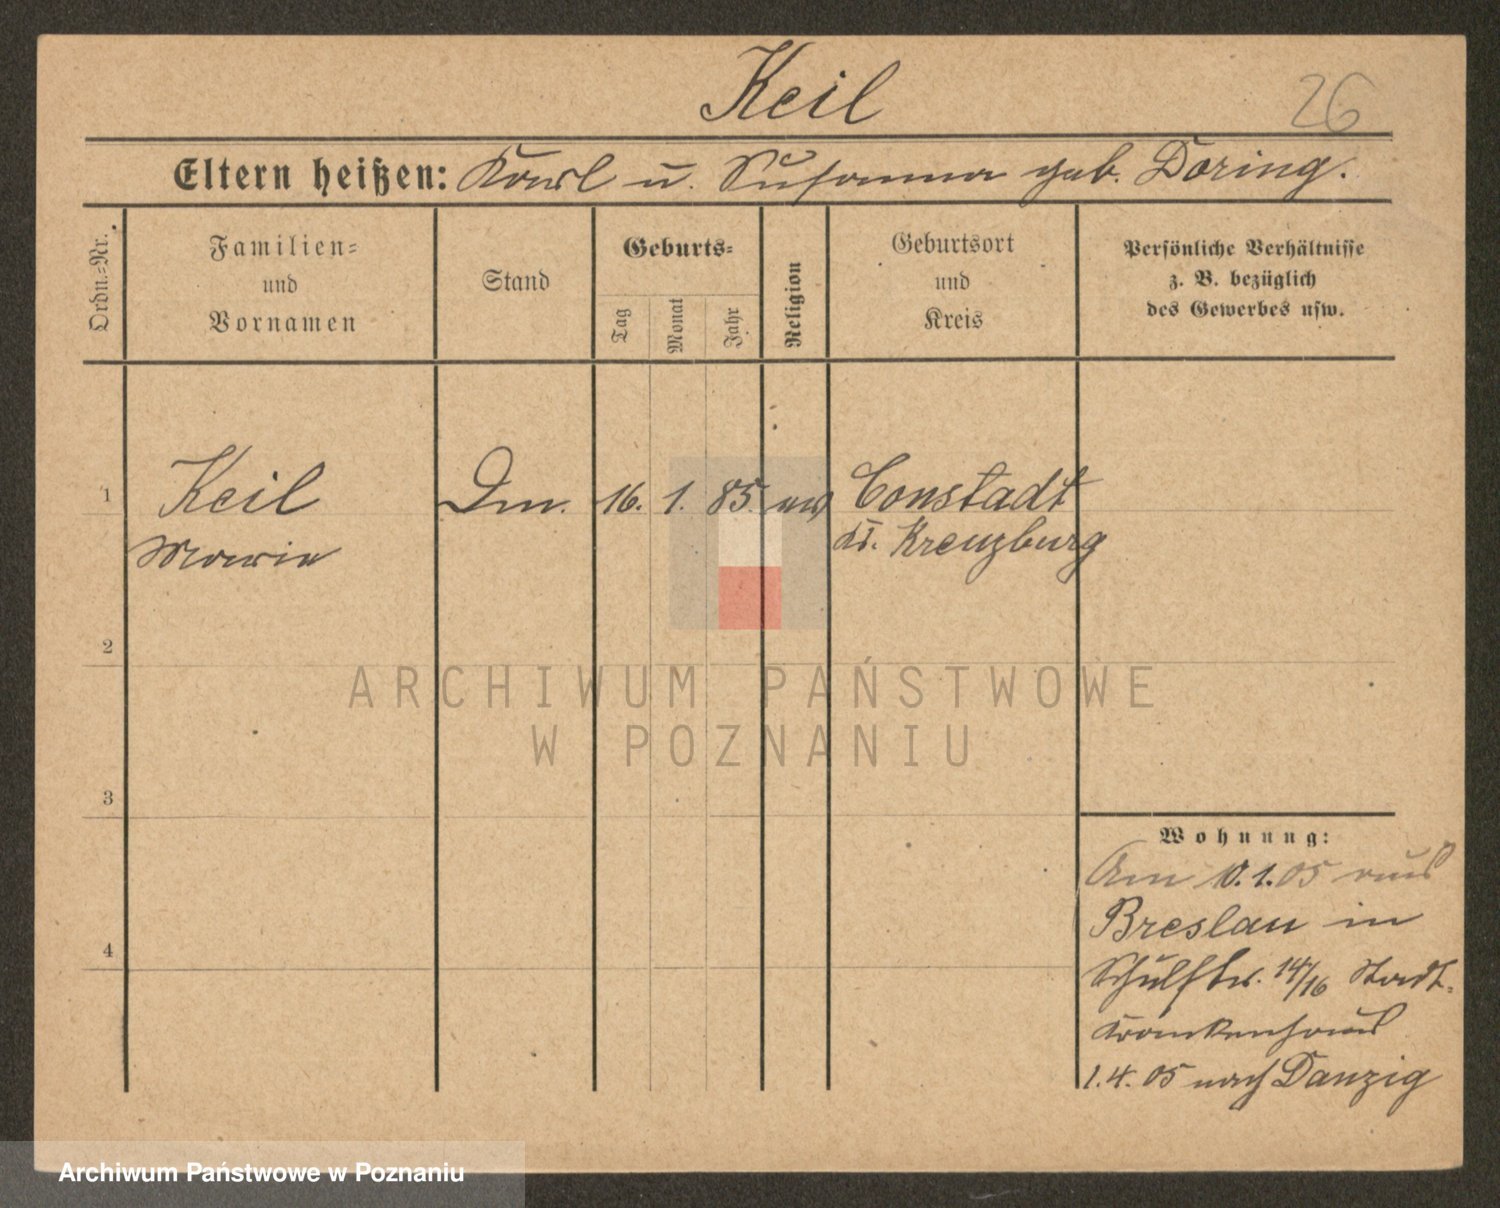 Keil
26
Eltern heißen: Karl u. Susanna geb. Doring.
Ordn.=Nr.
Familien=
und
Vornamen
Stand
Geburts=
Tag
Monat
Jahr
Religion
Geburtsort
und
Kreis
Persönliche Verhältnisse
z. B. bezüglich
des Gewerbes usw.
1
Keil
Maria
16. 1. 85.
Constadt
Kr. Kreuzburg
2
3
4
Wohnung:
Am 10.1.05 aus
Breslau in
Schulstr. 14/16 Stadt-
krankenhaus
1.4.05 nach Danzig
ARCHIWUM PAŃSTWOWE
W POZNANIU
Archiwum Państwowe w Poznaniu